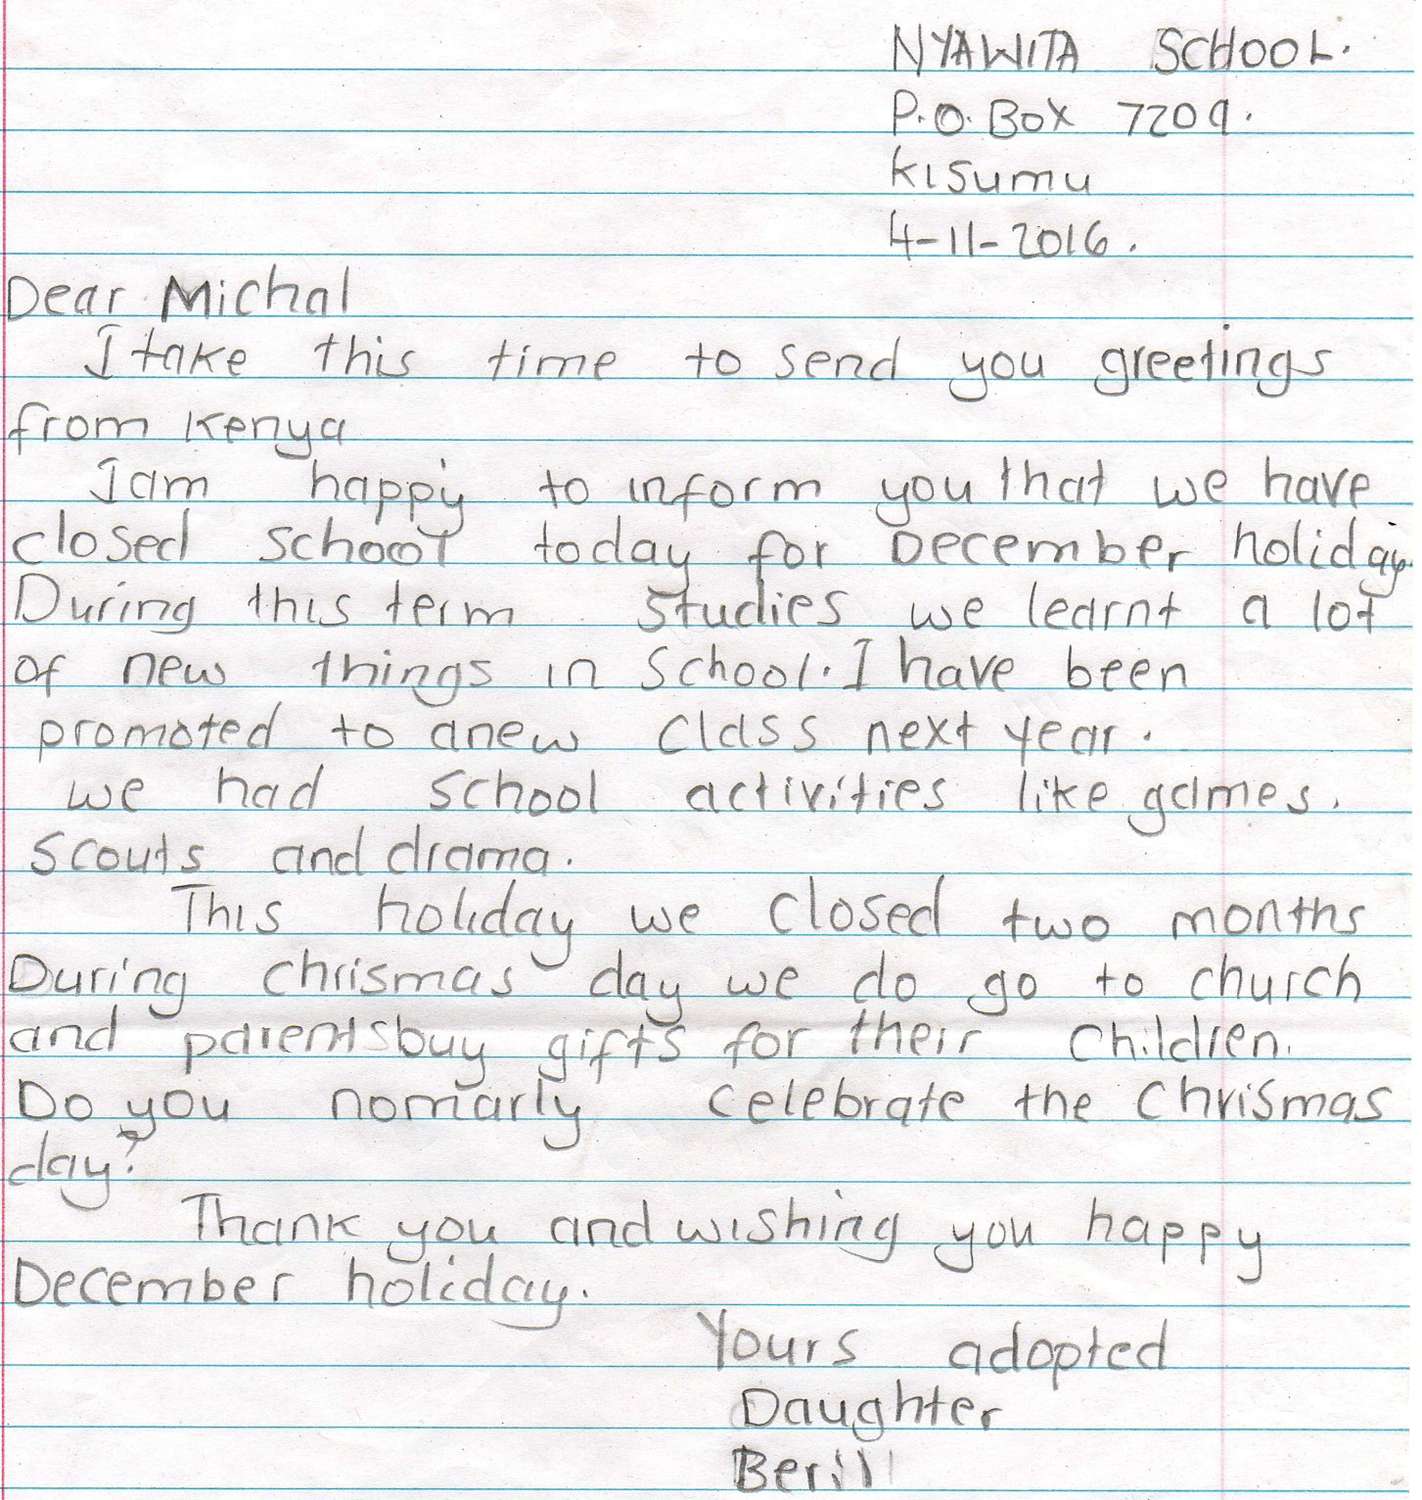 NYAWITA SCHOOL.
P.O. BOX 7209.
KISumu
4-11-2016.
Dear Michal
I take this time to send you greetings
from Kenya
I am happy to inform you that we have
closed school today for December holiday.
During this term studies we learnt a lot
of new things in school. I have been
promoted to anew class next year.
we had school activities like games.
scouts and drama.
This holiday we closed two months
During chrismas day we do go to church
and parents buy gifts for their children.
Do you nomarly celebrate the chrismas
day?
Thank you and wishing you happy
December holiday.
Yours adopted
Daughter
Berill